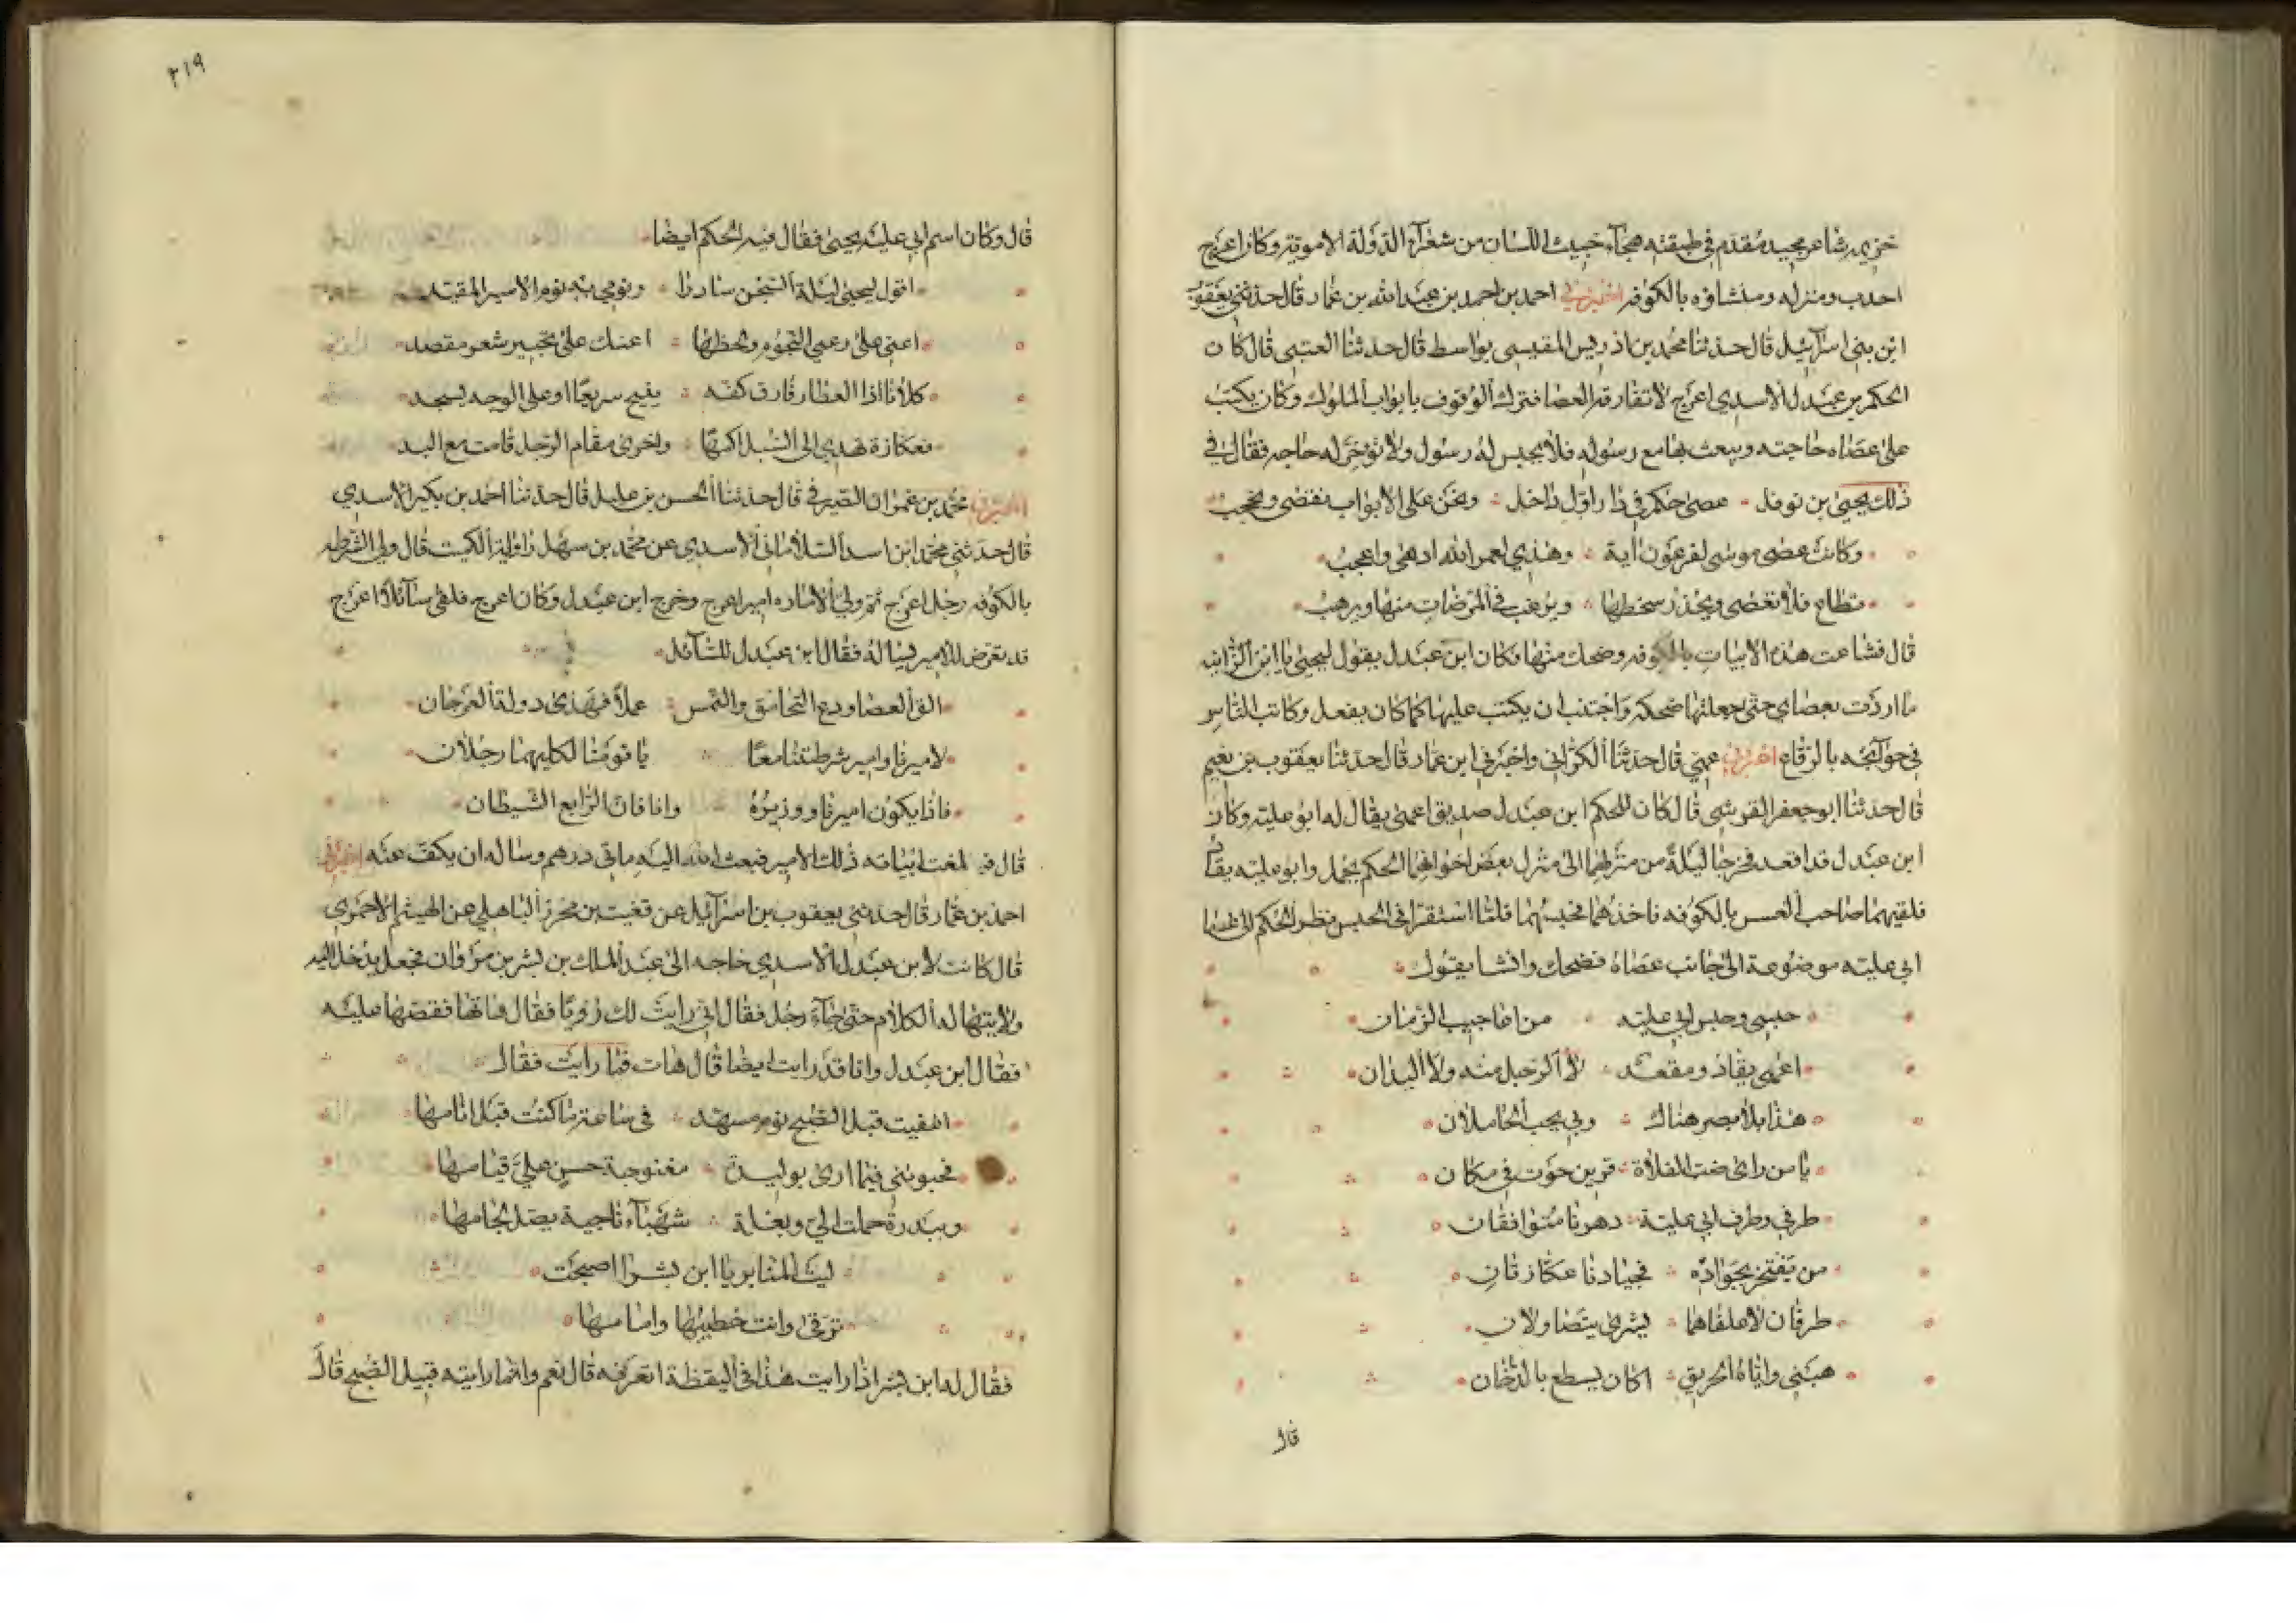 خزيمه شاعر مجيد مقدم في طبقته هجاء خبيث اللسان من شعراء الدولة الاموية وكان اعرج
احدب ومنزله ومنشاؤه بالكوفه اخبرني احمد بن احمد بن عبد الله بن عمار قال حدثني يعقوب
ابن بني اسرائيل قال حدثنا محمد بن ادريس المقيسي بواسط قال حدثنا العتبي قال كان
الحكم بن عبدل الاسدي اعرج لا تفارقه العصا فترك الوقوف بابواب الملوك وكان يكتب
على عصاه حاجته ويبعث بها مع رسوله فلا يحبس له رسول ولا تؤخر له حاجه فقال في
ذلك يحيى بن نوفل عصى حكم في دار اول داخل ونحن على الابواب نقضى ونحجب
وكانت عصى موسى لفرعون اية وهذي لعمر الله ادهى واعجب
تطاع فلا تعصى ويحذر سخطها ويرغب في المرضات منها ويرهب
قال فشاعت هذه الابيات بالكوفه وضحك منها فكان ابن عبدل يقول ليحيى يا ابن الزانيه
ما اردت بعصاي حتى جعلتها ضحكه واجتنب ان يكتب عليها كما كان يفعل وكاتب الناس
في حوائجه بالرقاع اخبرني عمي قال حدثنا الكراني واخبرني ابن عمار قال حدثنا يعقوب بن نعيم
قال حدثنا ابو جعفر القرشي قال كان للحكم ابن عبدل صديق اعمى يقال له ابو عليه وكان
ابن عبدل قد اقعد فخرجا ليلة من منزلهما الى منزل بعض اخوانهما الحكم يحمل وابو عليه يقاد
فلقيهما صاحب العسس بالكوفه فاخذهما فحبسهما فلما استقرا في الحبس نظر الحكم الى عصا
ابي عليه موضوعة الى جانب عصاه فضحك وانشا يقول
حبسي وحبس ابي عليه من اعاجيب الزمان
اعمى يقاد ومقعد لا الرجل منه ولا اليدان
هذا بلا بصر هناك وبي يحب الحاملان
يا من راى ضب الفلاة قرين حوت في مكان
طرفي وطرف ابي علية دهرنا متوافقان
من يفتخر بجواده فجيادنا عكازتان
طرفان لا علفاهما يشرى يتصاولان
هبني واياه الحريق اكان يسطع بالدخان
قال
٢١٩
قال وكان اسم ابي عليه يحيى فقال فيه الحكم ايضا
اقول ليحيى ليلة السجن سادرا ونومي به نوم الاسير المقيد
اعني على رعي النجوم ولحظها اعنك على تحبير شعر مقصد
كلانا اذا العطار فارق كفه يقيح سريعا او على الوجه يسجد
فعكازة تهدي الى السبل اكمها واخرى مقام الرجل قامت مع اليد
اخبرني محمد بن عمران الصيرفي قال حدثنا الحسن بن عليل قال حدثنا احمد بن بكير الاسدي
قال حدثني محمد ابن اسد السلاماني الاسدي عن محمد بن سهل راوية الكميت قال ولي الشرطه
بالكوفه رجل اعرج ثم ولي الاماره امير اعرج وخرج ابن عبدل وكان اعرج فلقي سائلا اعرج
قد تعرض للامير يساله فقال ابن عبدل للسائل
الق العصا ودع التخامق والتمس عملا فهذى دولة العرجان
لاميرنا وامير شرطتنا معا يا قومنا لكليهما رجلان
فاذا يكون اميرنا ووزيره وانا فان الرابع الشيطان
قال فبلغت ابياته ذلك الامير فبعث اليه ماتي درهم وساله ان يكف عنه اخبرني
احمد بن عمار قال حدثني يعقوب بن اسرائيل عن قعنب بن محرز الباهلي عن الهيثم الاحمري
قال كانت لابن عبدل الاسدي حاجه الى عبد الملك بن بشر بن مروان فجعل يدخل اليه
ولا يتهيا له الكلام حتى جاءه رجل فقال اني رايت لك رؤيا فقال هاتها فقصها عليه
فقال ابن عبدل وانا قد رايت ايضا قال هات فما رايت فقال
اغفيت قبل الصبح نوم مسهد في ساعة ما كنت قبل انامها
فحبوتني فيما ارى بوليدة مغنوجة حسن علي قيامها
وببدرة حملت الي وبغلة شهباء ناجية يصل لجامها
ليت المنابر يا ابن بشر اصبحت
ترقى وانت خطيبها وامامها
فقال له ابن بشر اذا رايت هذا في اليقظة اتعرفه قال نعم وانما رايته قبيل الصبح قال